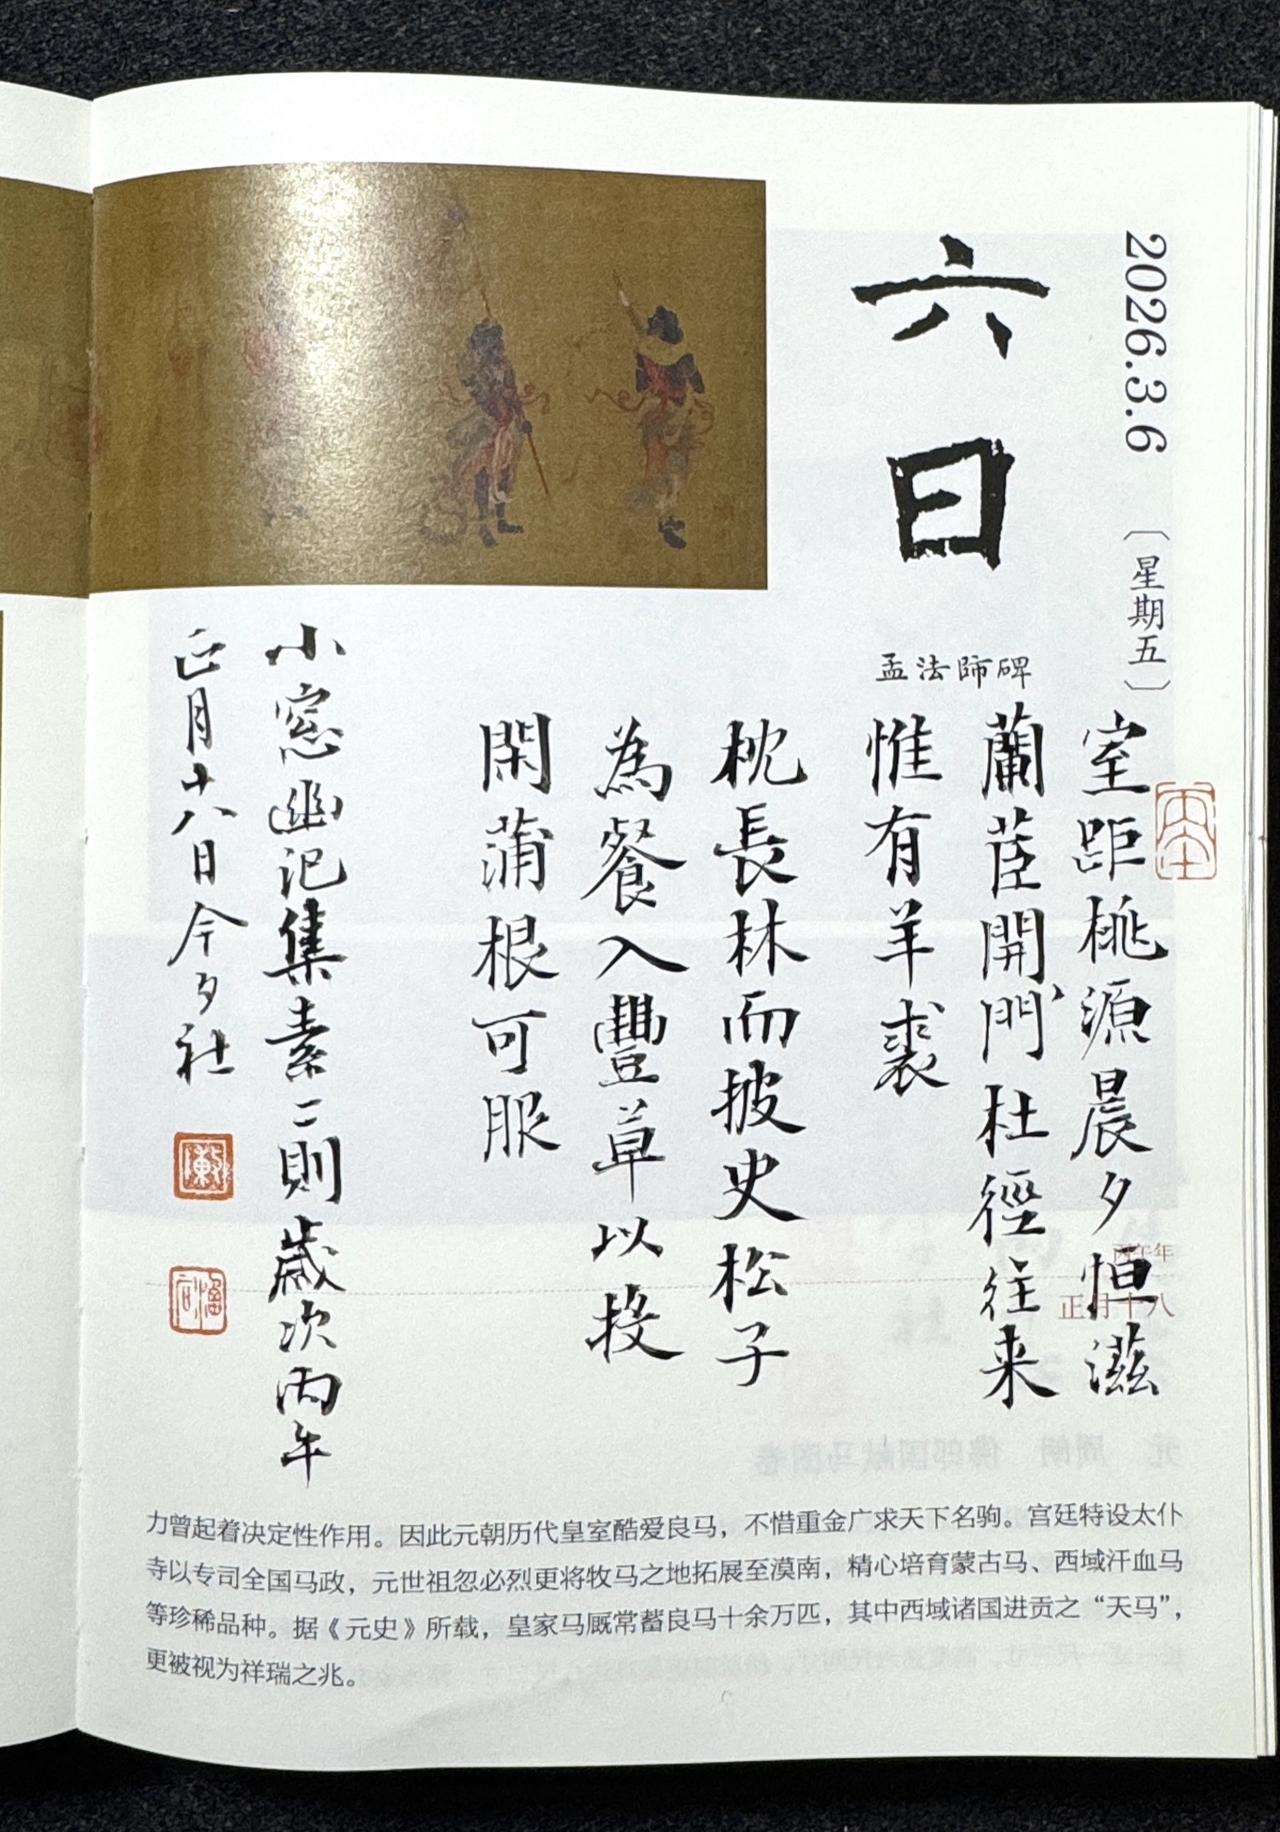 2026.3.6
〔星期五〕
六日
孟法師碑
室距桃源晨夕恒滋
蘭茝開門杜徑往来
惟有羊裘
枕長林而披史松子
為餐入豐草以投
閑蒲根可服
小窓幽记集素二則 歲次丙午
正月十八日今夕社
丙午年
正月十八
力曾起着决定性作用。因此元朝历代皇室酷爱良马，不惜重金广求天下名驹。宫廷特设太仆
寺以专司全国马政，元世祖忽必烈更将牧马之地拓展至漠南，精心培育蒙古马、西域汗血马
等珍稀品种。据《元史》所载，皇家马厩常蓄良马十余万匹，其中西域诸国进贡之“天马”，
更被视为祥瑞之兆。